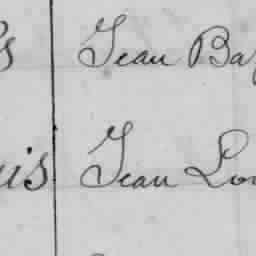 s Jean Ba
uis Jean Lou